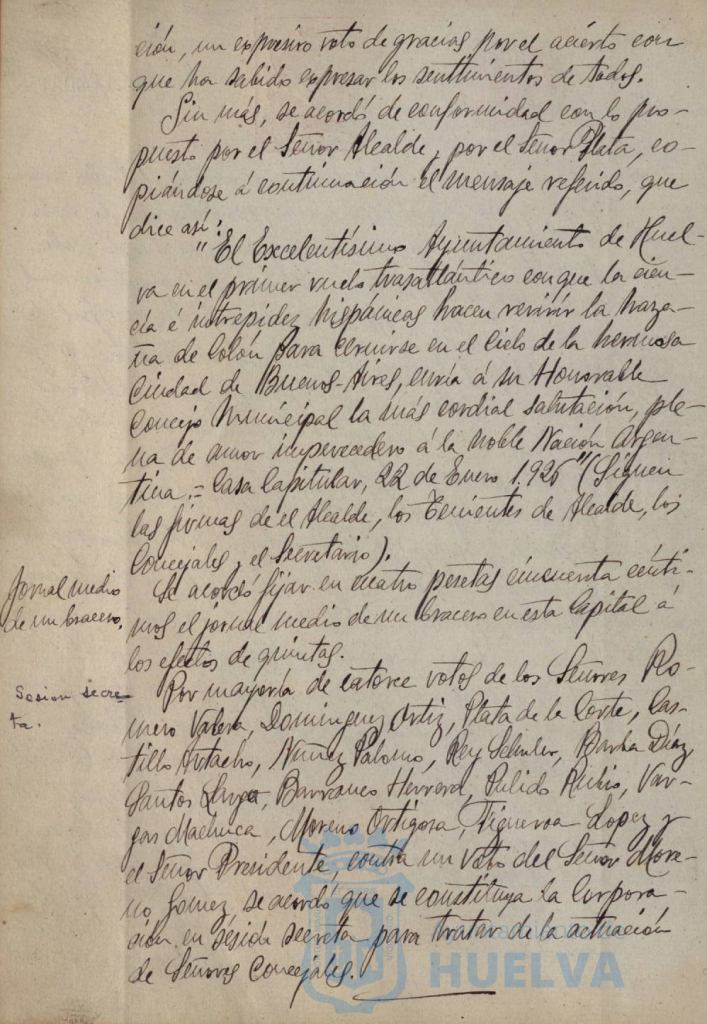 ción, un expresivo voto de gracias por el acierto con
que ha sabido expresar los sentimientos de todos.
Sin más, se acordó de conformidad con lo pro-
puesto por el Señor Alcalde, por el Señor Plata, co-
piándose á continuación el mensaje referido, que
dice así:
"El Excelentísimo Ayuntamiento de Huel-
va en el primer vuelo trasatlántico con que la cien-
cia é intrepidez hispánicas hacen revivir la haza-
ña de Colón para cernirse en el Cielo de la hermosa
Ciudad de Buenos-Aires, envía á su Honorable
Concejo Municipal la más cordial salutación, ple-
na de amor imperecedero á la noble Nación Argen-
tina.= Casa Capitular, 22 de Enero 1.926" (Siguen
las firmas de el Alcalde, los Tenientes de Alcalde, los
Concejales, el Secretario).
Jornal medio
de un bracero.
Se acordó fijar en cuatro pesetas cincuenta cénti-
mos el jornal medio de un bracero en esta Capital á
los efectos de quintas.
Sesion secre-
ta.
Por mayoría de catorce votos de los Señores Ro-
mero Valera, Dominguez Ortiz, Plata de la Corte, Cas-
tillo Artacho, Núñez Palomo, Rey Schuler, Barba Díaz,
Santos Barranco Herrera, Pulido Rubio, Var-
gas Machuca, Moreno Ortigosa, Figueroa Lopez y
el Señor Presidente, contra un voto del Señor More-
no Gomez, se acordó que se constituya la Corpora-
ción en sesión secreta para tratar de la actuación
de Señores Concejales.
HUELVA